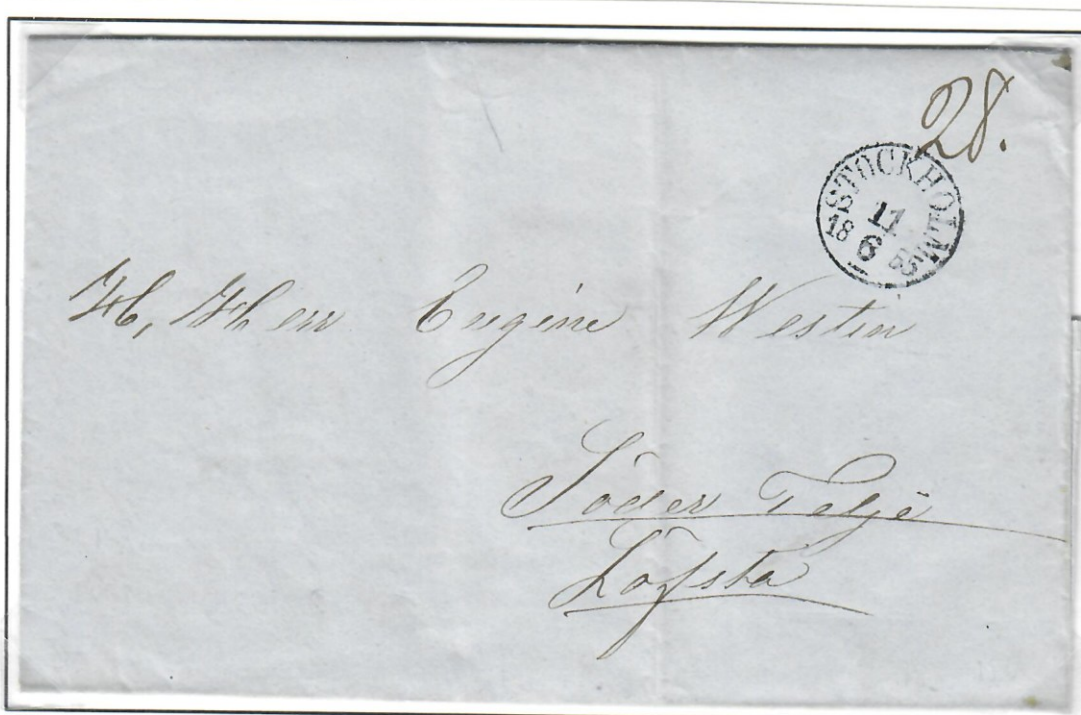 28.
STOCKHOLM
11
6
18 55
H. Herr Eugéne Westin
Söder Telje
Löfsta